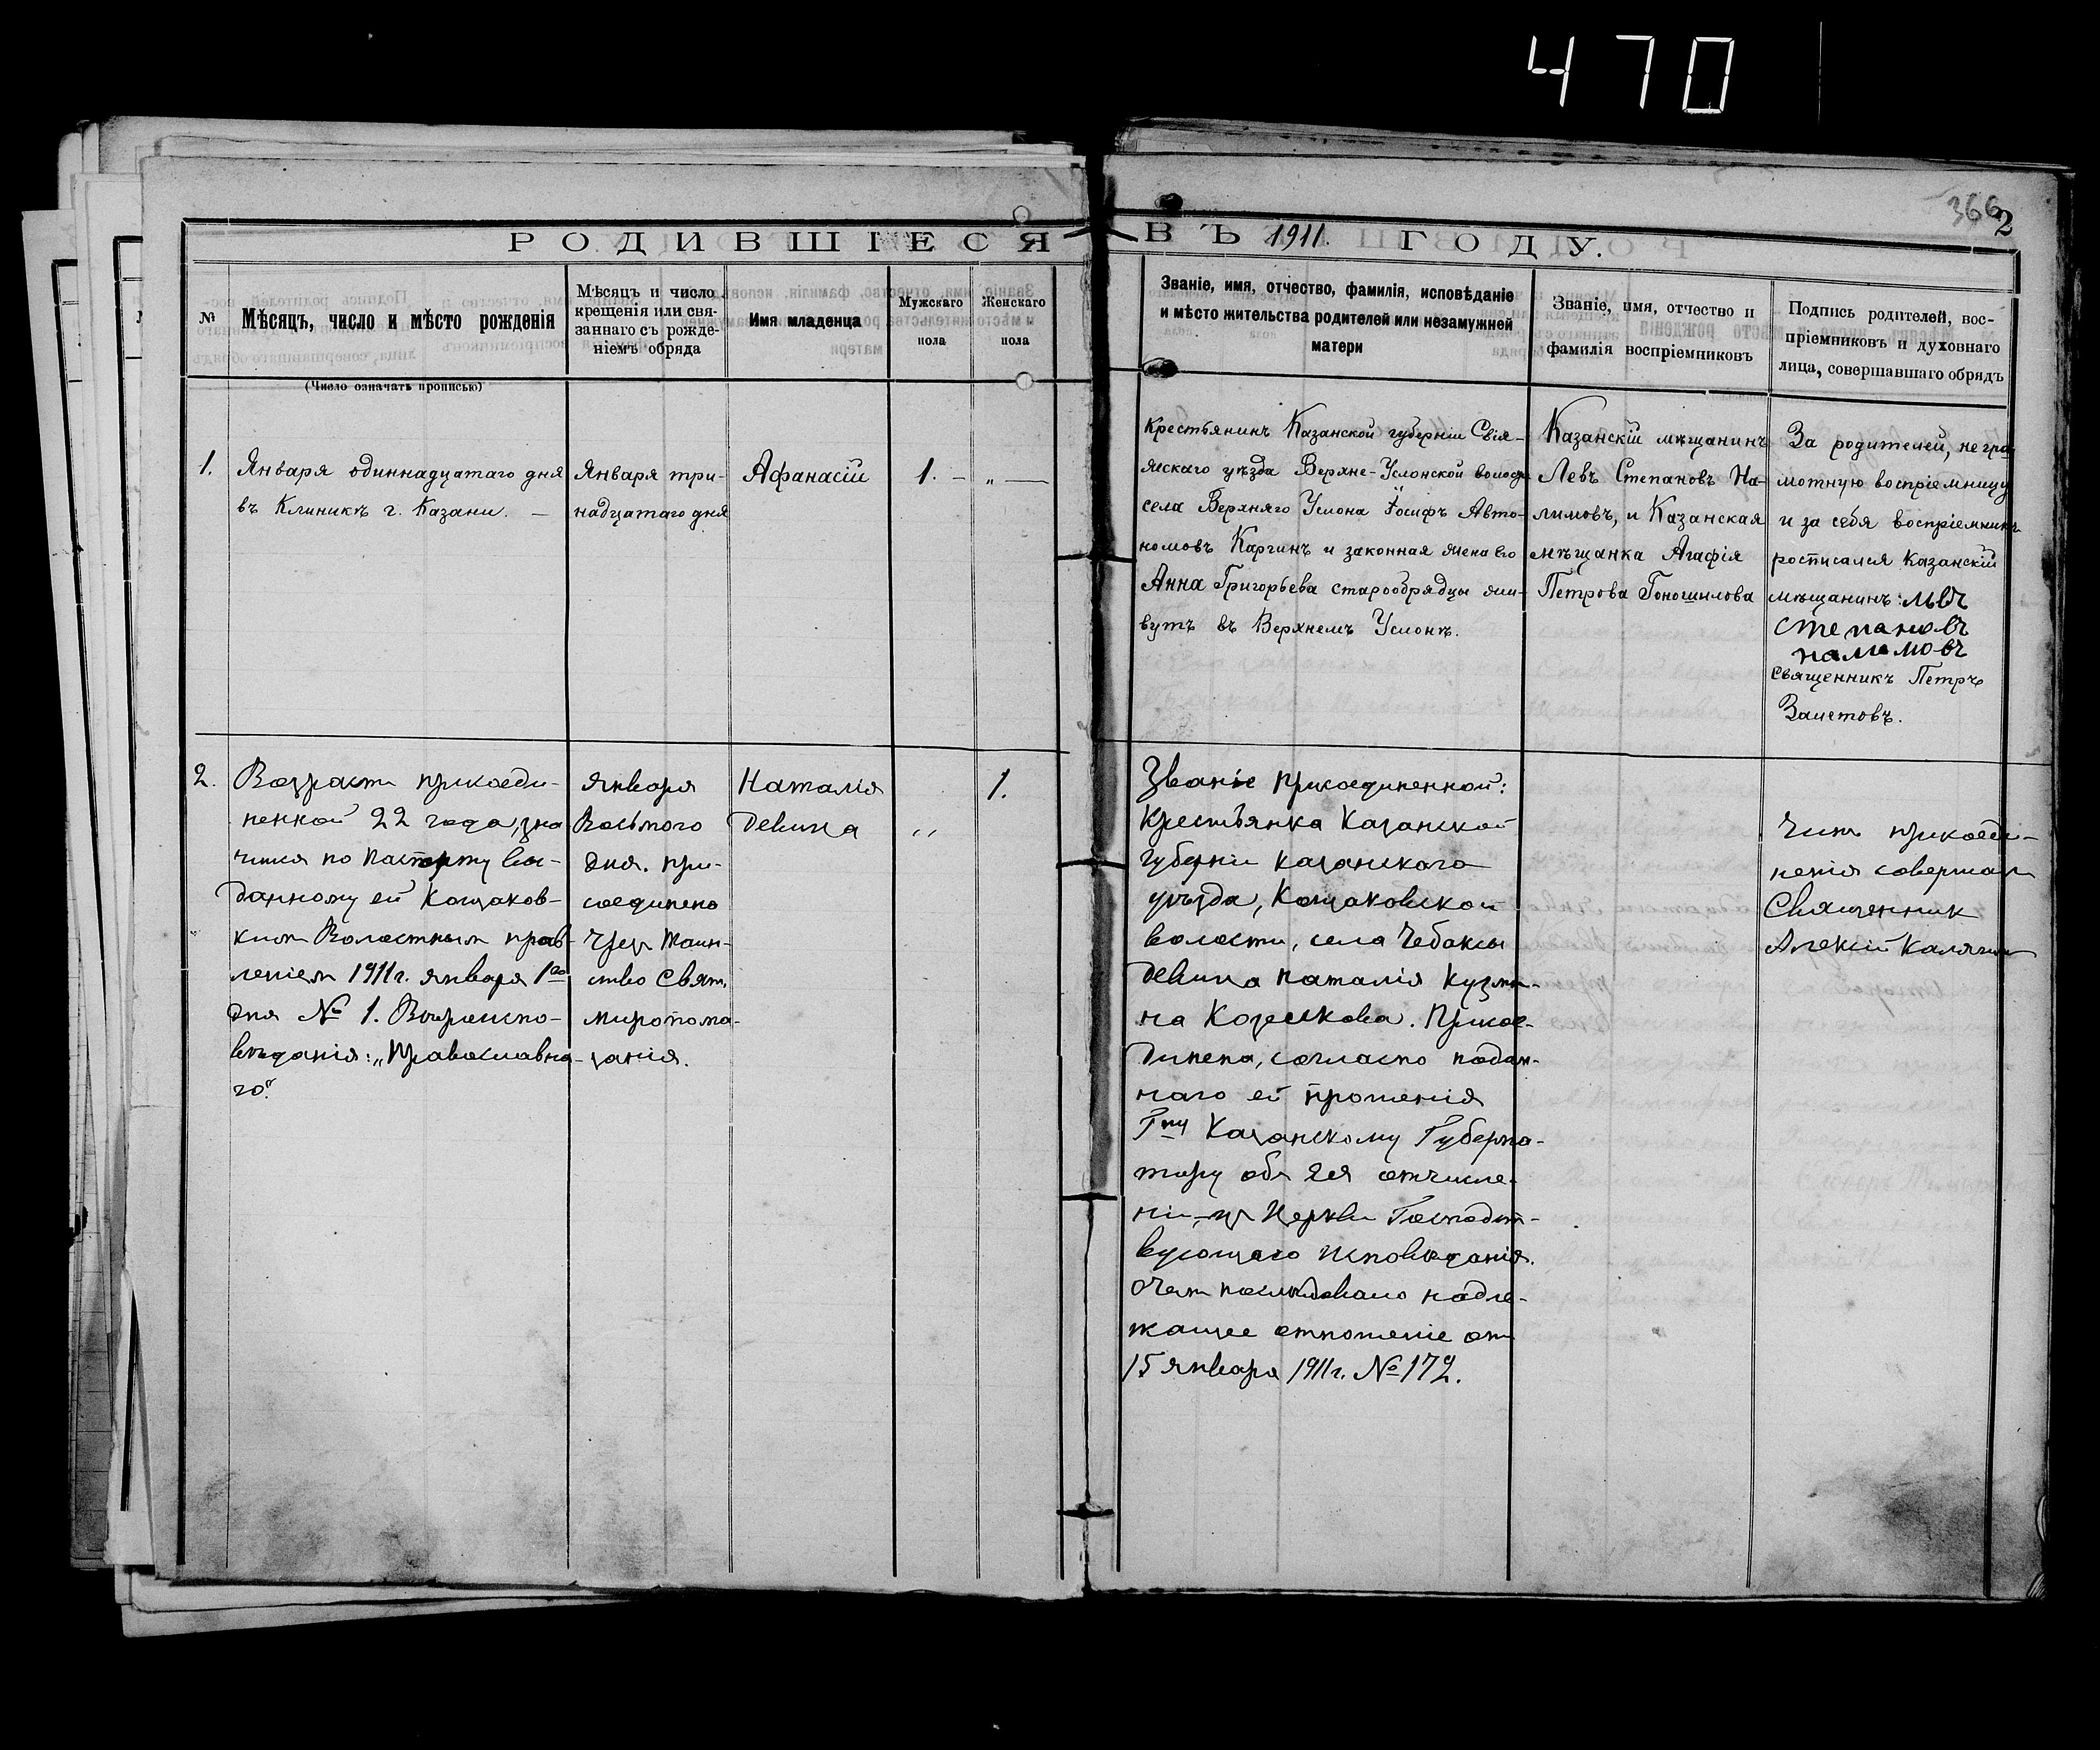 470
366
2
РОДИВШІЕСЯ ВЪ 1911. ГОДУ.
№
Мѣсяцъ, число и мѣсто рожденія
(Число означать прописью)
Мѣсяцъ и число
крещенія или свя-
заннаго съ рожде-
ніемъ обряда
Имя младенца
Мужскаго
пола
Женскаго
пола
Званіе, имя, отчество, фамилія, исповѣданіе
и мѣсто жительства родителей или незамужней
матери
Званіе, имя, отчество и
фамилія воспріемниковъ
Подпись родителей, вос-
пріемниковъ и духовнаго
лица, совершавшаго обрядъ
1.
Января одиннадцатаго дня
въ Клиникѣ г. Казани. —
Января три-
надцатаго дня
Афанасій
1. —
„ —
Крестьянинъ Казанской губерніи Свія-
жскаго уѣзда Верхне-Услонской волости
села Верхняго Услона Іосифъ Авто-
номовъ Каргинъ и законная жена его
Анна Григорьева старообрядцы жи-
вутъ въ Верхнемъ Услонѣ.
Казанскій мѣщанинъ
Левъ Степановъ На-
лимовъ, и Казанская
мѣщанка Агафія
Петрова Гоношилова
За родителей, негра-
мотную воспріемницу
и за себя воспріемникъ
росписался Казанскій
мѣщанинъ: львъ
степановъ
налимовъ
священникъ Петръ
Залетовъ.
2.
Возрастъ присоеди-
ненной 22 года, зна
чится по паспорту вы-
данному ей Кощаков-
кимъ Волостнымъ прав-
леніемъ 1911 г. января 1го
дня № 1. Вѣроиспо-
вѣданія: „Православна-
го“.
Января
Восьмого
дня. при-
соединена
чрезъ таин-
ство Свят.
миропома-
занія.
Наталія
девица
„
1.
Званіе присоединенной:
Крестьянка Казанской
губерніи казанскаго
уѣзда, Кощаковской
волости, села Чебаксы
девица Наталія Кузми-
на Козлкова. Присое-
динена, согласно подан-
наго ей прошенія
Гну Казанскому Губерна-
тору объ ея отчисле-
ніи изъ Церкви Господст-
вующаго исповѣданія.
О чемъ послѣдовало надле-
жащее отношеніе отъ
15 января 1911 г. № 172.
Чинъ присоеди-
ненія совершалъ
Священникъ
Алексій Калягин